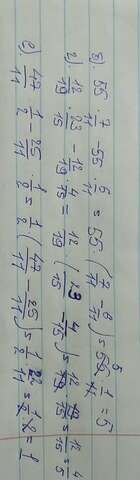 з) 55 · 7/11 - 55 · 6/11 = 55 (7/11 - 6/11) = 55 · 1/11 = 5
и) 12/19 · 23/15 - 12/19 · 4/15 = 12/19 (23/15 - 4/15) = 12/19 · 19/15 = 12/15 = 4/5
е) 47/11 · 1/2 - 25/11 · 1/2 = 1/2 (47/11 - 25/11) = 1/2 · 22/11 = 1/2 · 2 = 1